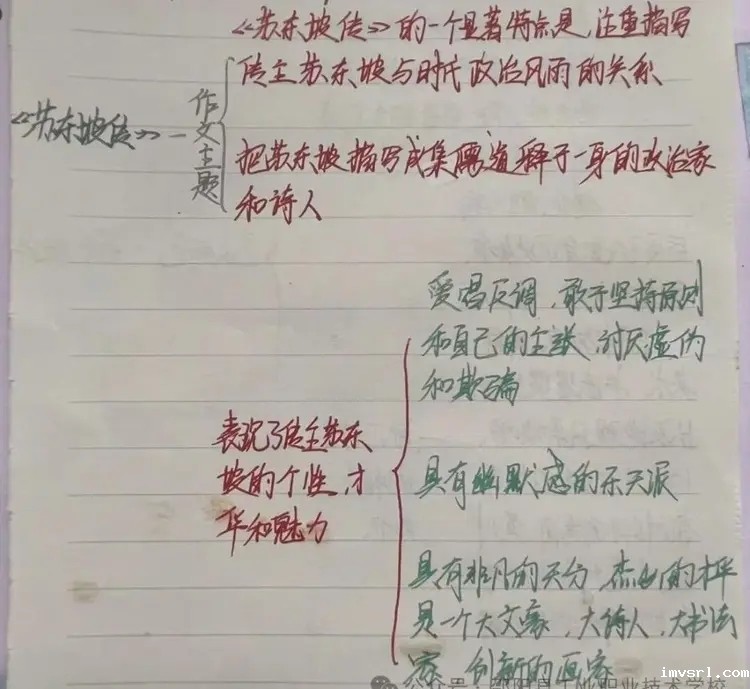 《苏东坡传》的一个显著特点是,注重描写
传主苏东坡与时代政治风雨的关系
《苏东坡传》—
作文主题
把苏东坡描写成集儒道释于一身的政治家
和诗人
爱唱反调,敢于坚持原则
和自己的主张,讨厌虚伪
和欺骗
表现了传主苏东
坡的个性,才
华和魅力
具有幽默感的乐天派
具有非凡的天分,杰出的才
是一个大文豪,大诗人,大书法
家,创新的画家
公众号·邵阳县工业职业技术学校
imvsrl.com